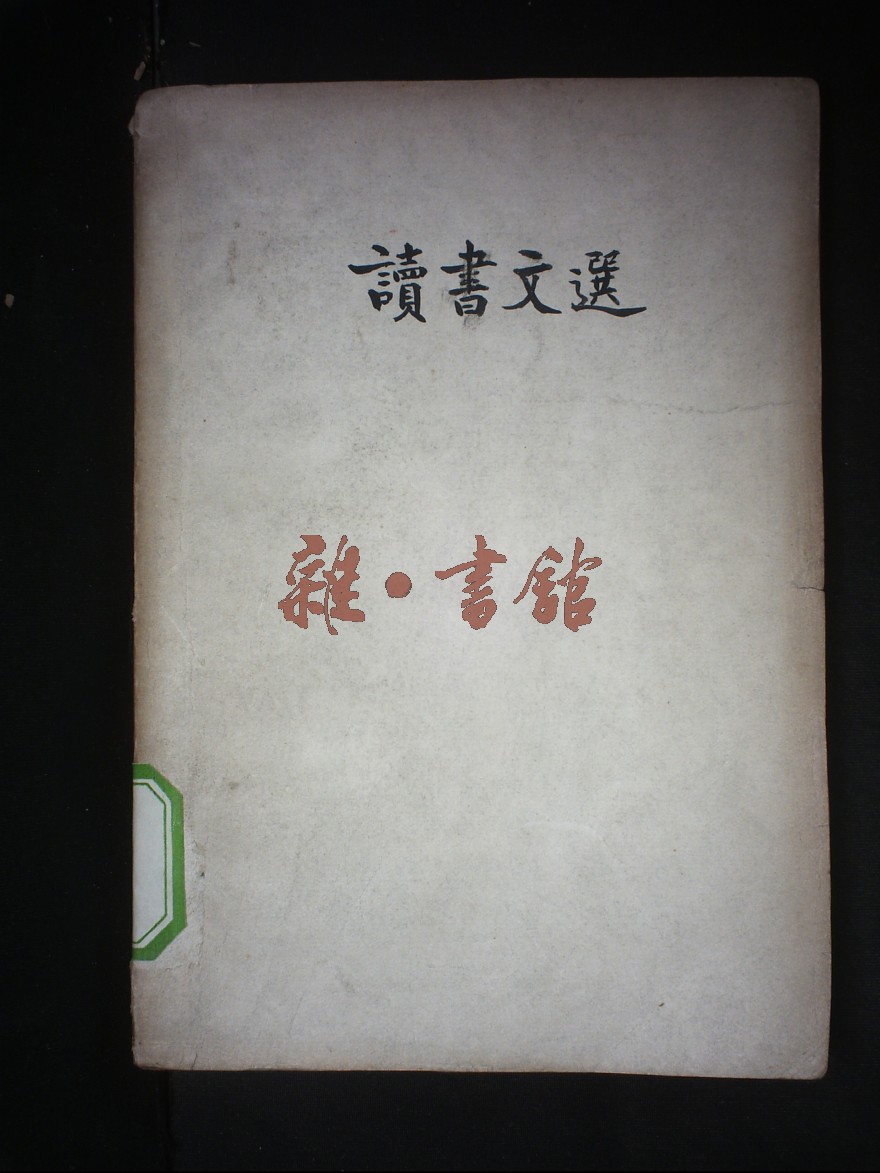 讀書文選
雜·書館